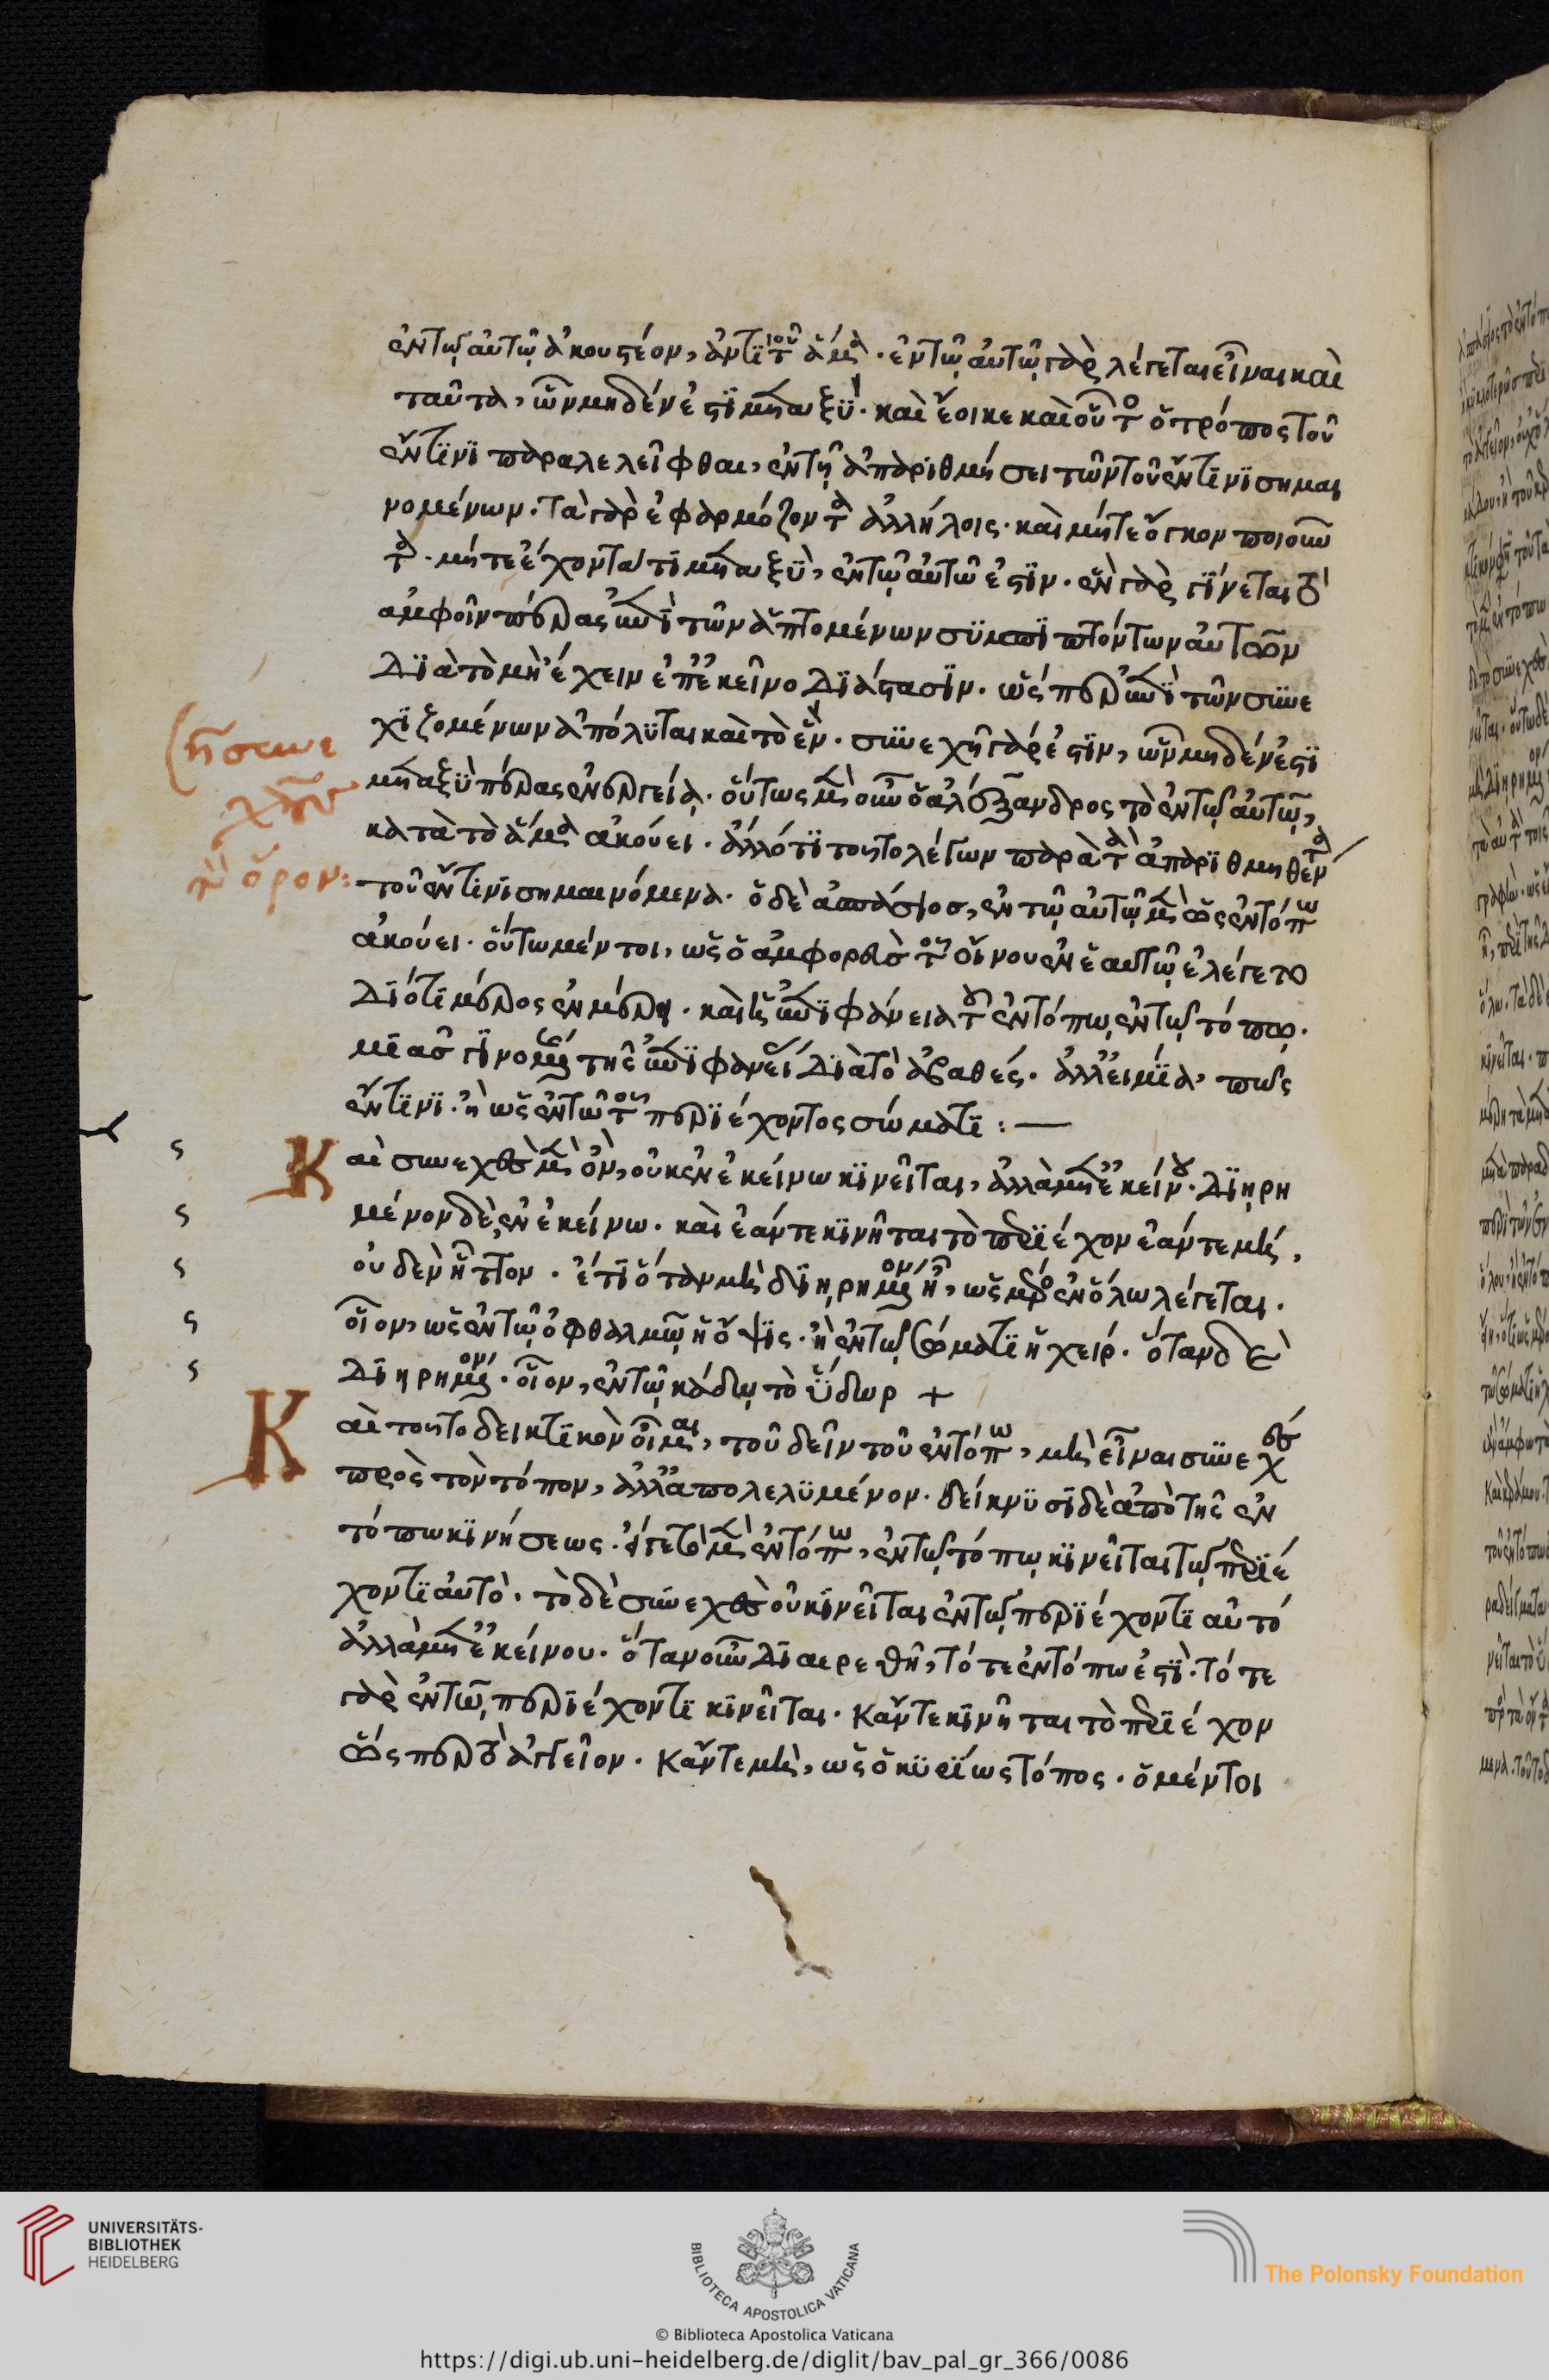 ἐν τῷ αὐτῷ ἀκουστέον, ἀντὶ τοῦ ἅμα· ἐν τῷ αὐτῷ γὰρ λέγεται εἶναι καὶ
ταῦτα, ὧν μηδέν ἐστι μεταξύ· καὶ ἔοικε καὶ οὗτος ὁ τρόπος τοῦ
ἔν τινι παραλελεῖφθαι, ἐν τῇ ἀπαριθμήσει τῶν τοῦ ἔν τινι σημαι
νομένων· τὰ γὰρ ἐφαρμόζοντα ἀλλήλοις· καὶ μήτε ὄγκον ποιοῦν
τα· μήτε ἔχοντά τι μεταξύ, ἐν τῷ αὐτῷ ἐστίν· ἓν γὰρ γίνεται τὸ
ἀμφοῖν πέρας ἐπὶ τῶν ἁπτομένων συμπιπτόντων αὐτῶν
διὰ τὸ μὴ ἔχειν ἐπ' ἐκεῖνο διάστασιν· ὥσπερ ἐπὶ τῶν συνε
χιζομένων ἀπόλυται καὶ τὸ ἕν· συνεχῆ γάρ ἐστιν, ὧν μηδέν ἐστι
μεταξὺ πέρας ἐνεργείᾳ· οὕτως μὲν οὖν ὁ ἀλέξανδρος τὸ ἐν τῷ αὐτῷ,
κατὰ τὸ ἅμα ἀκούει· ἀλλ' ὅτι τοῦτο λέγων παρὰ τὰ ἀπαριθμηθέντα
τοῦ ἔν τινι σημαινόμενα· ὁ δὲ ἀσπάσιος, ἐν τῷ αὐτῷ μὲν ὡς ἐν τόπῳ
ἀκούει· οὕτω μέντοι, ὡς ὁ ἀμφορεὺς τοῦ οἴνου ἐν ἑαυτῷ ἐλέγετο
διότι μέρος ἐν μέρει· καὶ ἡ ἐπιφάνεια τοῦ ἐν τόπῳ, ἐν τῷ τόπῳ·
μιᾶς γινομένης τῆς ἐπιφανείας διὰ τὸ ἀβαθές· ἀλλ' εἰ μία, πῶς
ἔν τινι· ἢ ὡς ἐν τῷ τοῦ περιέχοντος σώματι:—
Καὶ συνεχὲς μὲν ὄν, οὐκ ἐν ἐκείνῳ κινεῖται, ἀλλὰ μετ' ἐκείνου· διῃρη
μένον δὲ, ἐν ἐκείνῳ· καὶ ἐάν τε κινῆται τὸ περιέχον ἐάν τε μή,
οὐδὲν ἧττον· ἔτι ὅταν μὴ διῃρημένον ᾖ, ὡς μέρος ἐν ὅλῳ λέγεται·
οἷον, ὡς ἐν τῷ ὀφθαλμῷ ἡ ὄψις· ἢ ἐν τῷ σώματι ἡ χείρ· ὅταν δὲ
διῃρημένον· οἷον, ἐν τῷ κάδῳ τὸ ὕδωρ +
Καὶ τοῦτο δεικτικὸν οἶμαι, τοῦ δεῖν τοῦ ἐν τόπῳ, μὴ εἶναι συνεχὲς
πρὸς τὸν τόπον, ἀλλ' ἀπολελυμένον· δείκνυσι δὲ ἀπὸ τῆς ἐν
τόπῳ κινήσεως· εἴ γε τὸ μὲν ἐν τόπῳ, ἐν τῷ τόπῳ κινεῖται τῷ περιέ
χοντι αὐτὸ· τὸ δὲ συνεχὲς οὐ κινεῖται ἐν τῷ περιέχοντι αὐτό
ἀλλὰ μετ' ἐκείνου· ὅταν οὖν διαιρεθῇ, τότε ἐν τόπῳ ἐστὶ· τότε
γὰρ ἐν τῷ περιέχοντι κινεῖται· κἄν τε κινῆται τὸ περιέχον
ὥσπερ τὸ ἀγγεῖον· κἄν τε μὴ, ὡς ὁ κυρίως τόπος· ὁ μέντοι
UNIVERSITÄTS-
BIBLIOTHEK
HEIDELBERG
BIBLIOTECA APOSTOLICA VATICANA
The Polonsky Foundation
© Biblioteca Apostolica Vaticana
https://digi.ub.uni-heidelberg.de/diglit/bav_pal_gr_366/0086